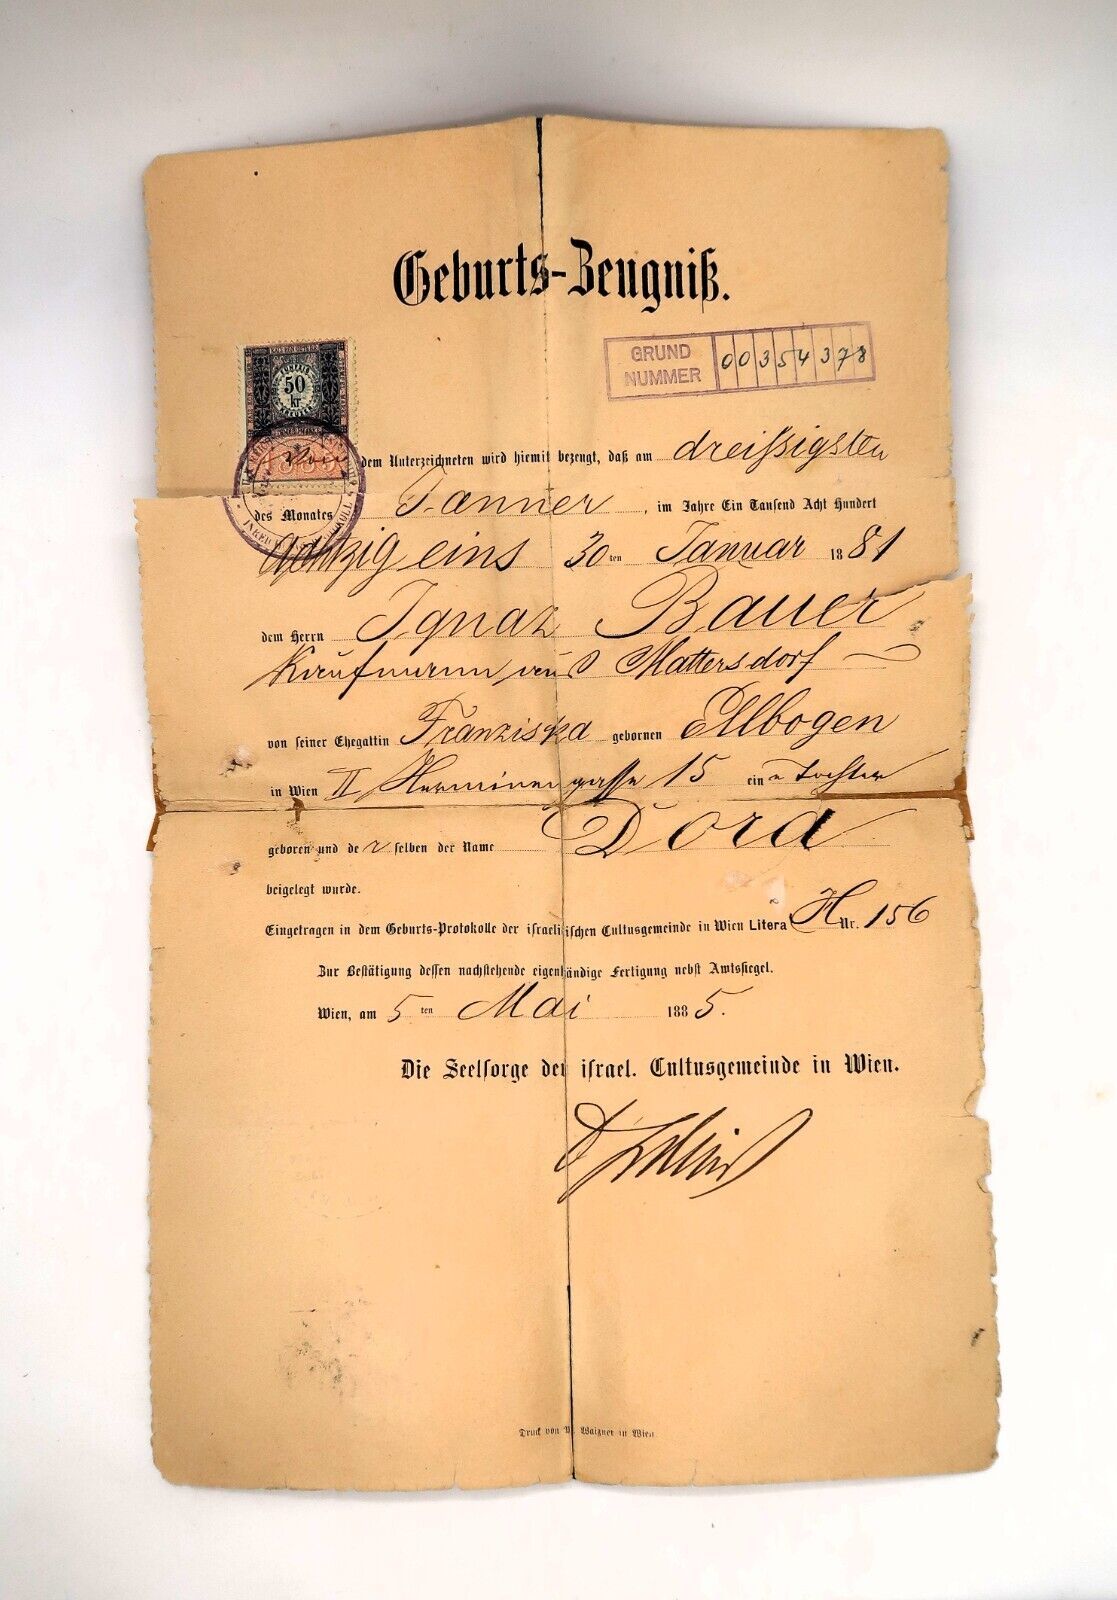 Geburts-Zeugniß.
GRUND NUMMER 00354378
50 Kr
Von dem Unterzeichneten wird hiemit bezeugt, daß am dreißigsten
des Monates Janner, im Jahre Ein Tausend Acht Hundert
achtzig eins 30ten Januar 1881
dem Herrn Ignaz Bauer
Kaufmann aus Mattersdorf
von seiner Ehegattin Franziska gebornen Ellbogen
in Wien II Herminengasse 15 eine Tochter
geboren und der selben der Name Dora
beigelegt wurde.
Eingetragen in dem Geburts-Protokolle der israelitischen Cultusgemeinde in Wien Litera H Nr. 156
Zur Bestätigung dessen nachstehende eigenhändige Fertigung nebst Amtssiegel.
Wien, am 5ten Mai 1885.
Die Seelsorge der israel. Cultusgemeinde in Wien.
Druck von Waizner in Wien